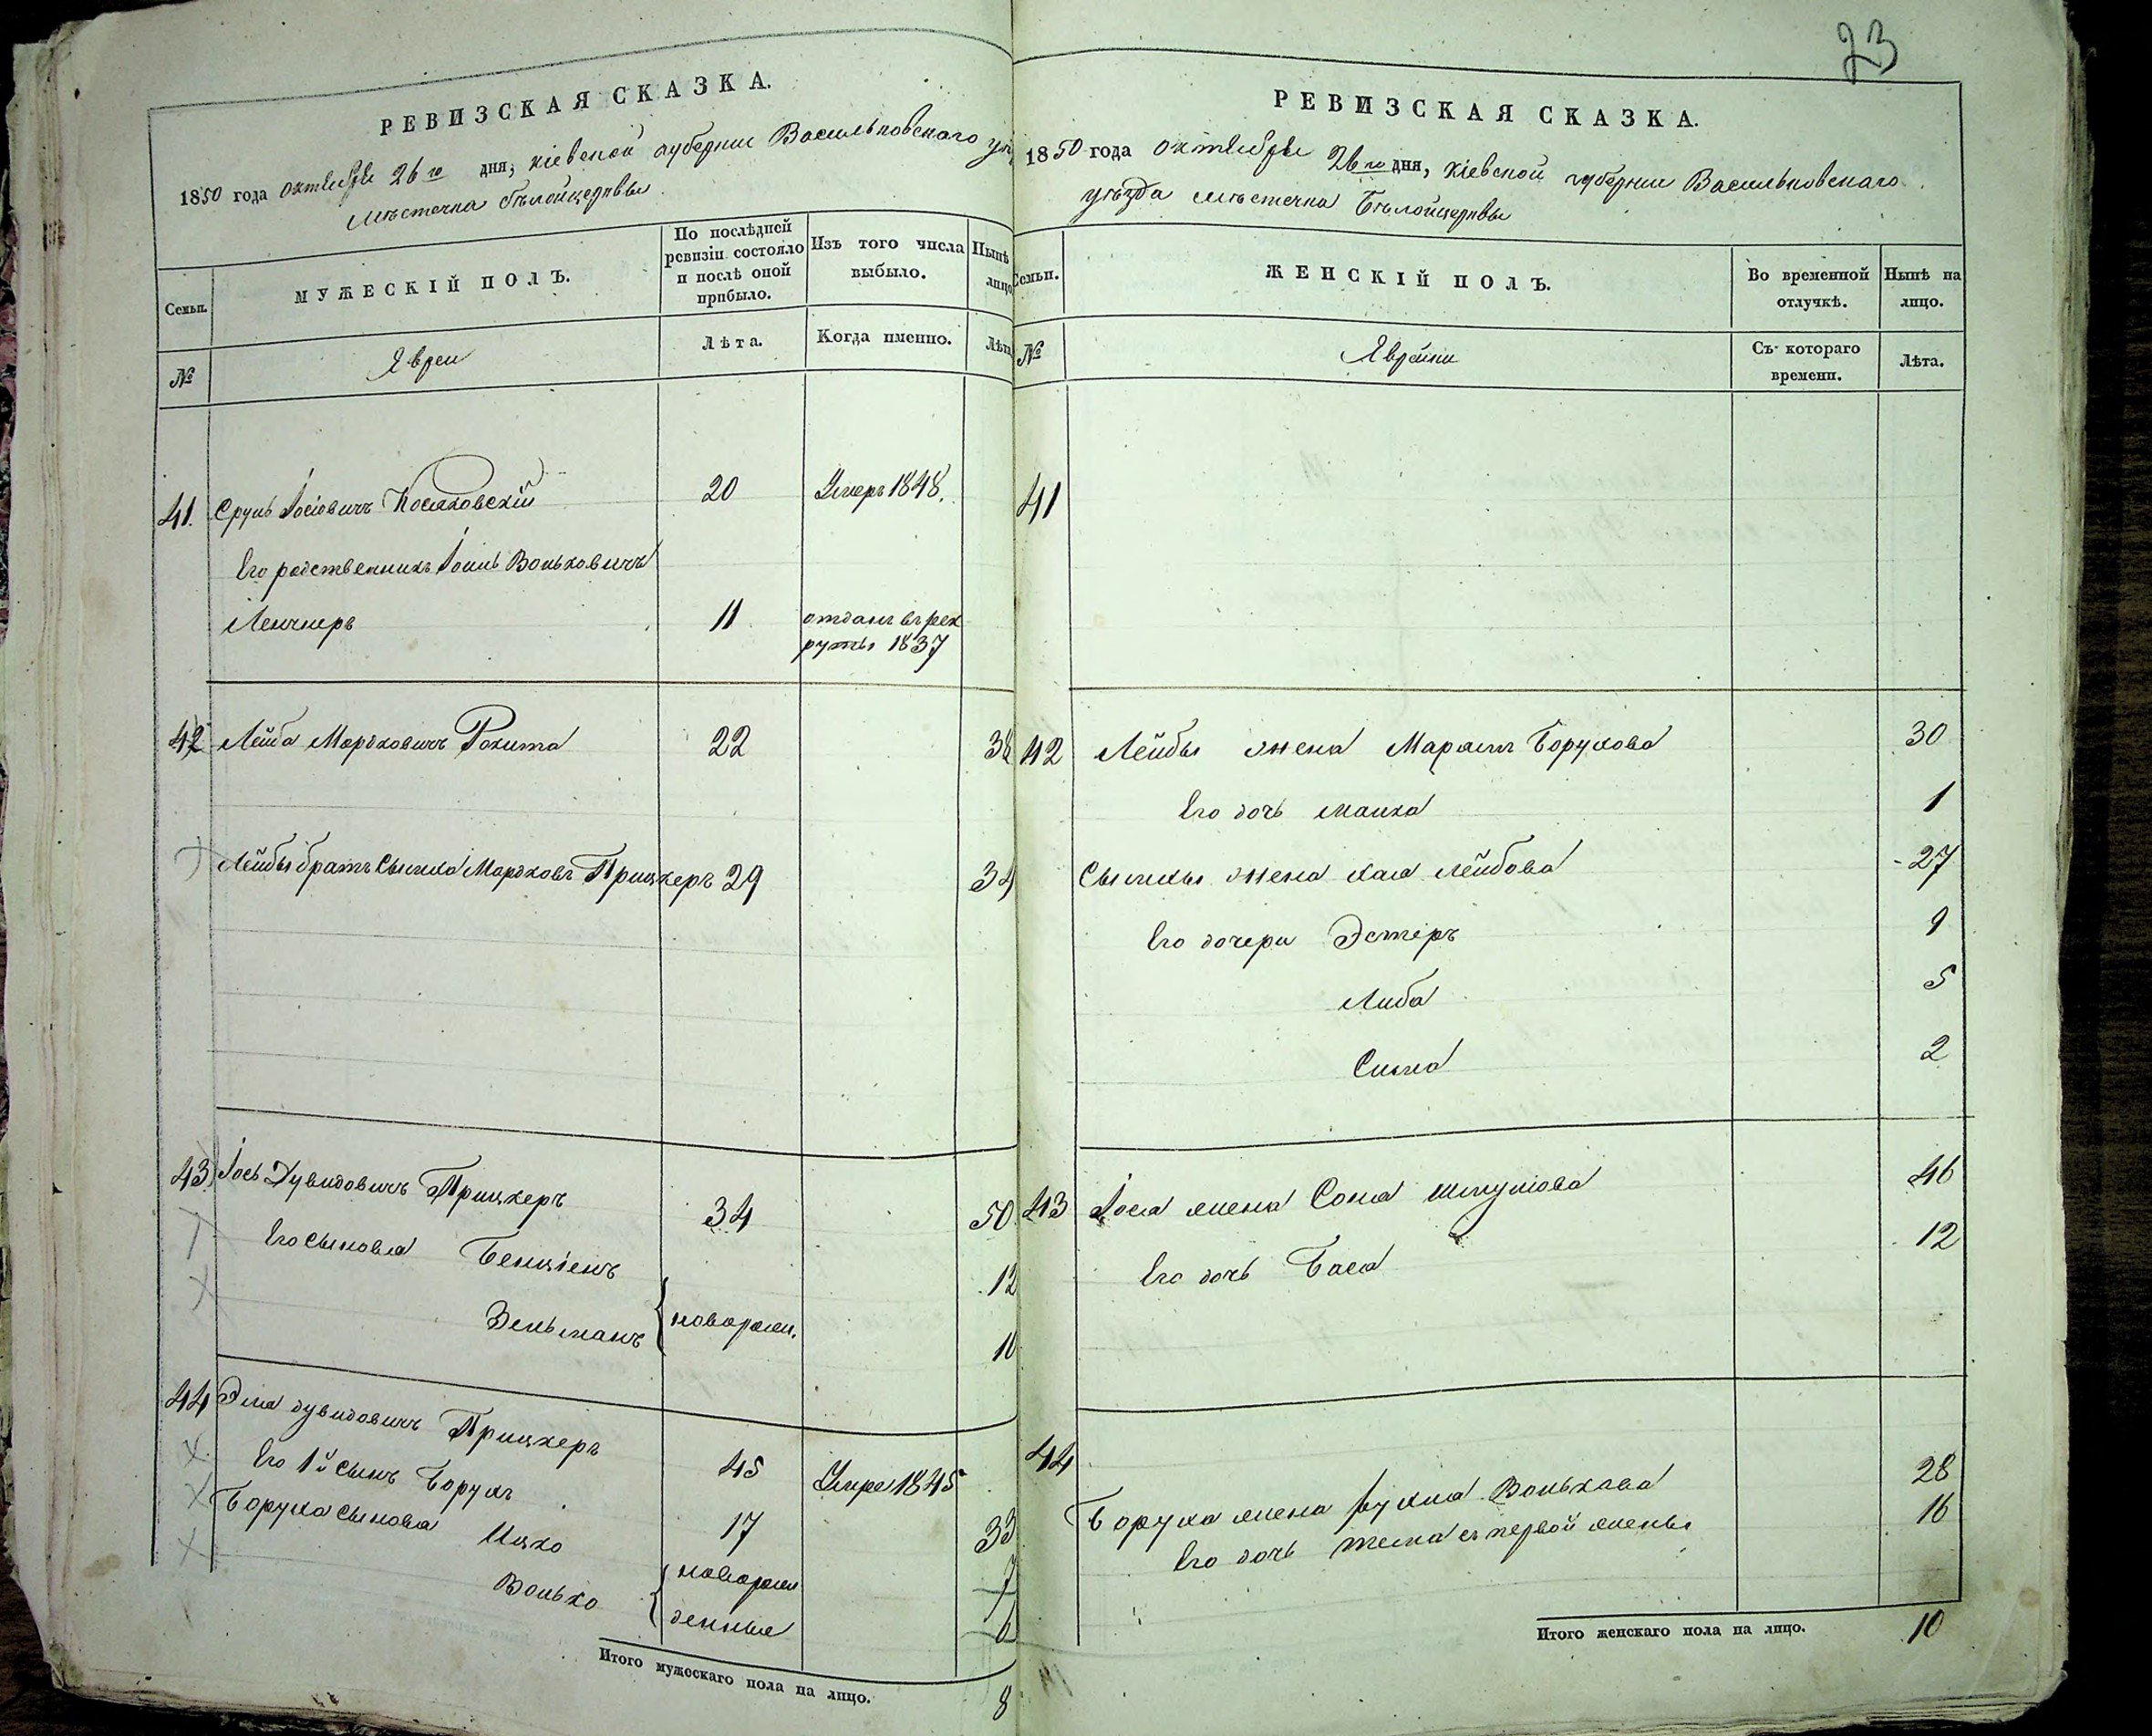 РЕВИЗСКАЯ СКАЗКА.
1850 года октября 26го дня, Кіевской губерніи Васильковскаго
мѣстечка Бѣлойцеркви
Семьи.
МУЖЕСКІЙ ПОЛЪ.
По послѣдней ревизіи состояло и послѣ оной прибыло.
Изъ того числа выбыло.
Нынѣ лицо
№
Явреи
Лѣта.
Когда именно.
Лѣта
41. Сруль Іосіовичъ Посяковскій 20 Умеръ 1848.
Его родственникъ Волькович
Ленчнеръ 11 отданъ въ рек
руты 1837
42 Лейба Мордковичъ Рокита 22 38
Лейбы братъ Сымха Мордковъ Прицкеръ 29
43 Іось Дувидовичъ Прицкеръ 34 50
Его сыновя Бенціонъ 12
Зельманъ { новорожд. 10
44 Эля дувидовичъ Прицкеръ 45 Умре 1845
Его 1й сынъ Борухъ 17 33
Боруха сыновя Ицко { новорож 7
Волько { денные 6
Итого мужескаго пола на лицо. 8
23
РЕВИЗСКАЯ СКАЗКА.
1850 года октября 26го дня, Кіевской губерніи Васильковскаго
уѣзда мѣстечка Бѣлойцеркви
Семьи.
ЖЕНСКІЙ ПОЛЪ.
Во временной отлучкѣ.
Нынѣ на лицо.
№
Яврейки
Съ котораго времени.
Лѣта.
41
42 Лейбы жена Марьям Борухова 30
Его дочь малка 1
Сымхы жена хая лейбова 27
Его дочери Эстеръ 9
Либа 5
Сима 2
43 Іося жена Соня шмулова 46
Его дочь Бася 12
44
Боруха жена Рухля Волькова 28
Его дочь тема съ первой жены 16
Итого женскаго пола на лицо. 10